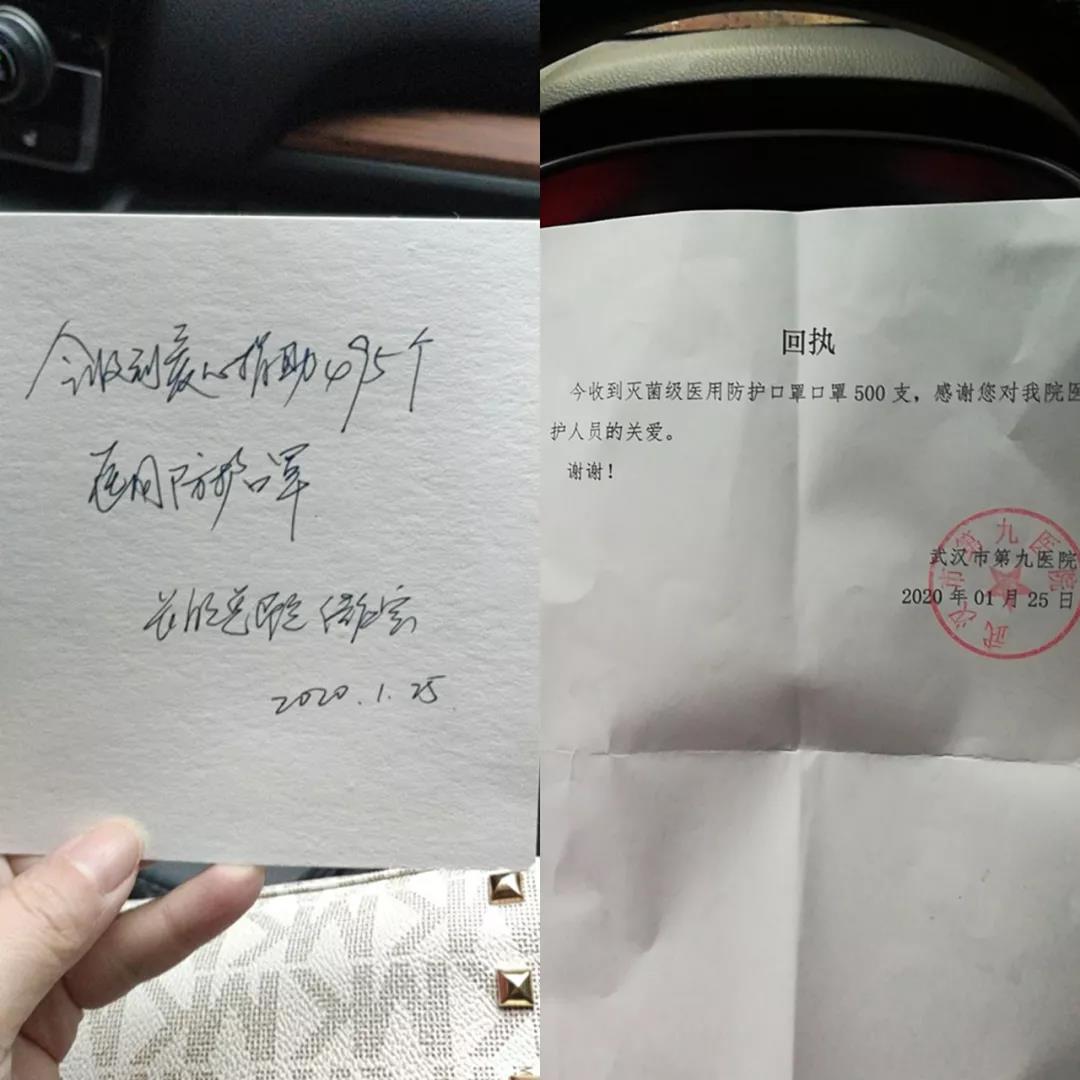 今收到爱心捐助495个
医用防护口罩
2020.1.25
回执
今收到灭菌级医用防护口罩口罩 500 支，感谢您对我院医
护人员的关爱。
谢谢！
武汉市第九医院
2020 年 01 月 25 日
武汉市第九医院